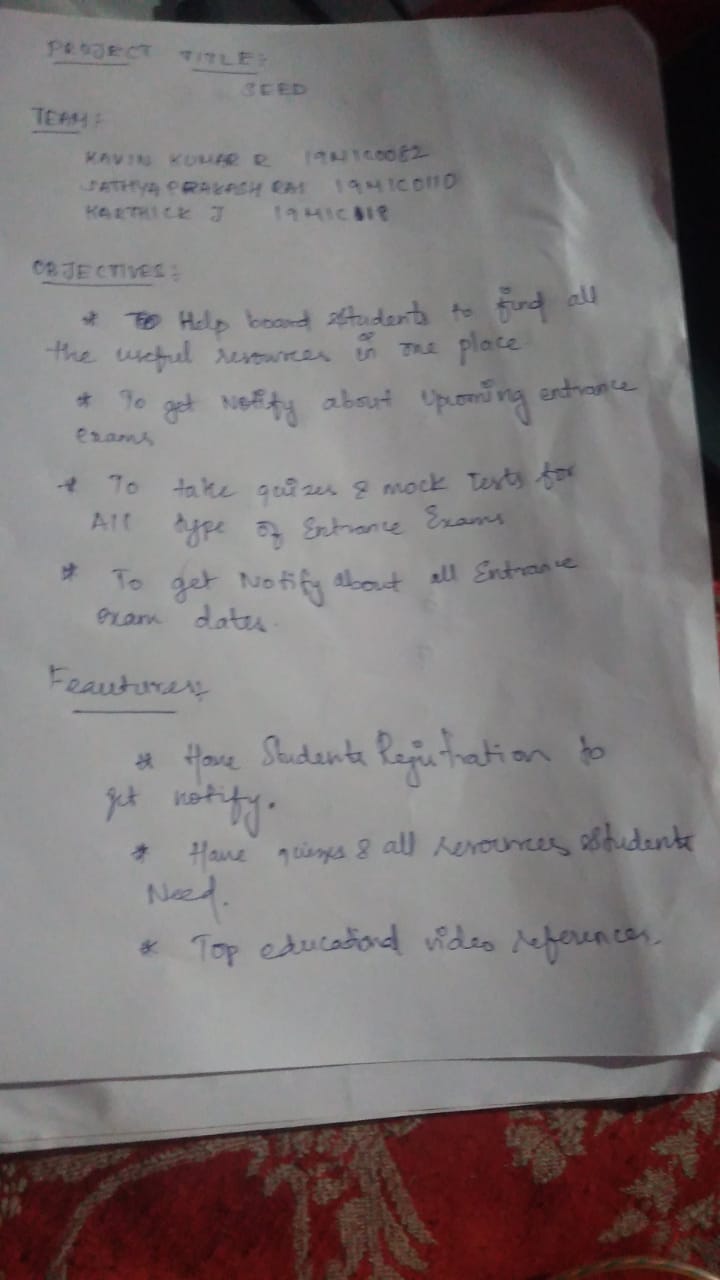 PROJECT TITLE:
SEED
TEAM:
KAVIN KUMAR R 19MIC0082
SATHYA PRAKASH 19MIC0110
KARTHICK J
OBJECTIVES:
* To Help board students to find all
the useful resources in one place
* To get Notify about Upcoming entrance
exams
* To take quizes & mock Tests for
All type of Entrance Exams
* To get Notify about all Entrance
exam dates.
Feautures:
* Have Students Registration to
get notify.
* Have & all resources students
Need.
* Top educational video references.